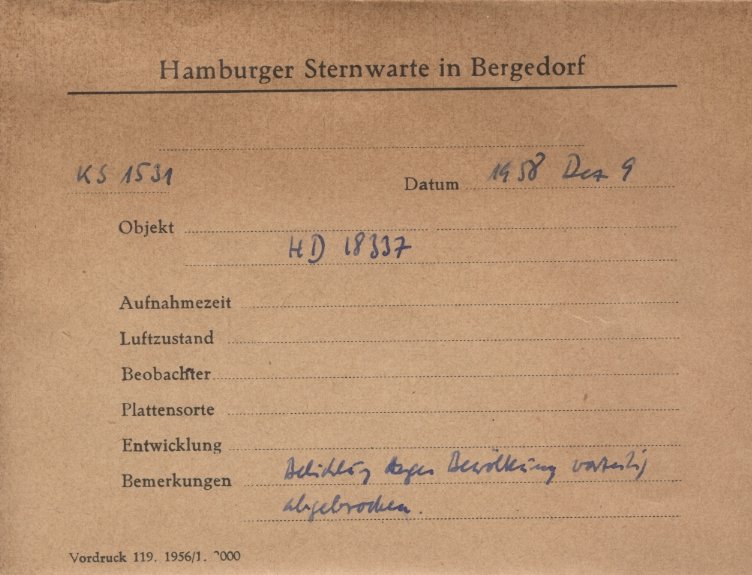 Hamburger Sternwarte in Bergedorf
KS 1531
Datum 1958 Dez 9
Objekt
HD 18337
Aufnahmezeit
Luftzustand
Beobachter
Plattensorte
Entwicklung
Bemerkungen Belichtung wegen Bewölkung vorzeitig
abgebrochen.
Vordruck 119. 1956/1. 2000